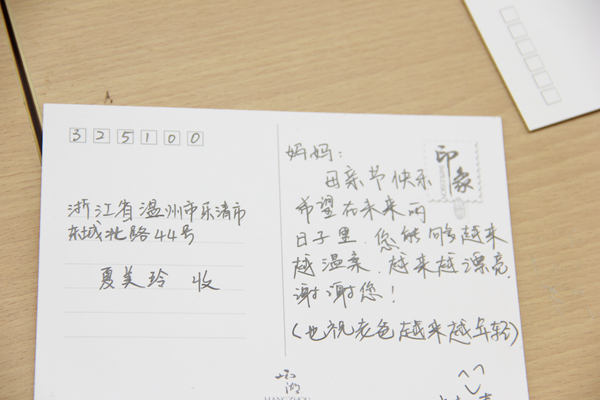 325100
浙江省温州市乐清市
东城北路44号
夏美玲 收
妈妈：
母亲节快乐
希望在未来的
日子里，您能够越来
越温柔，越来越漂亮，
谢谢您！
（也祝老爸越来越年轻）
印象
西湖
HANGZHOU